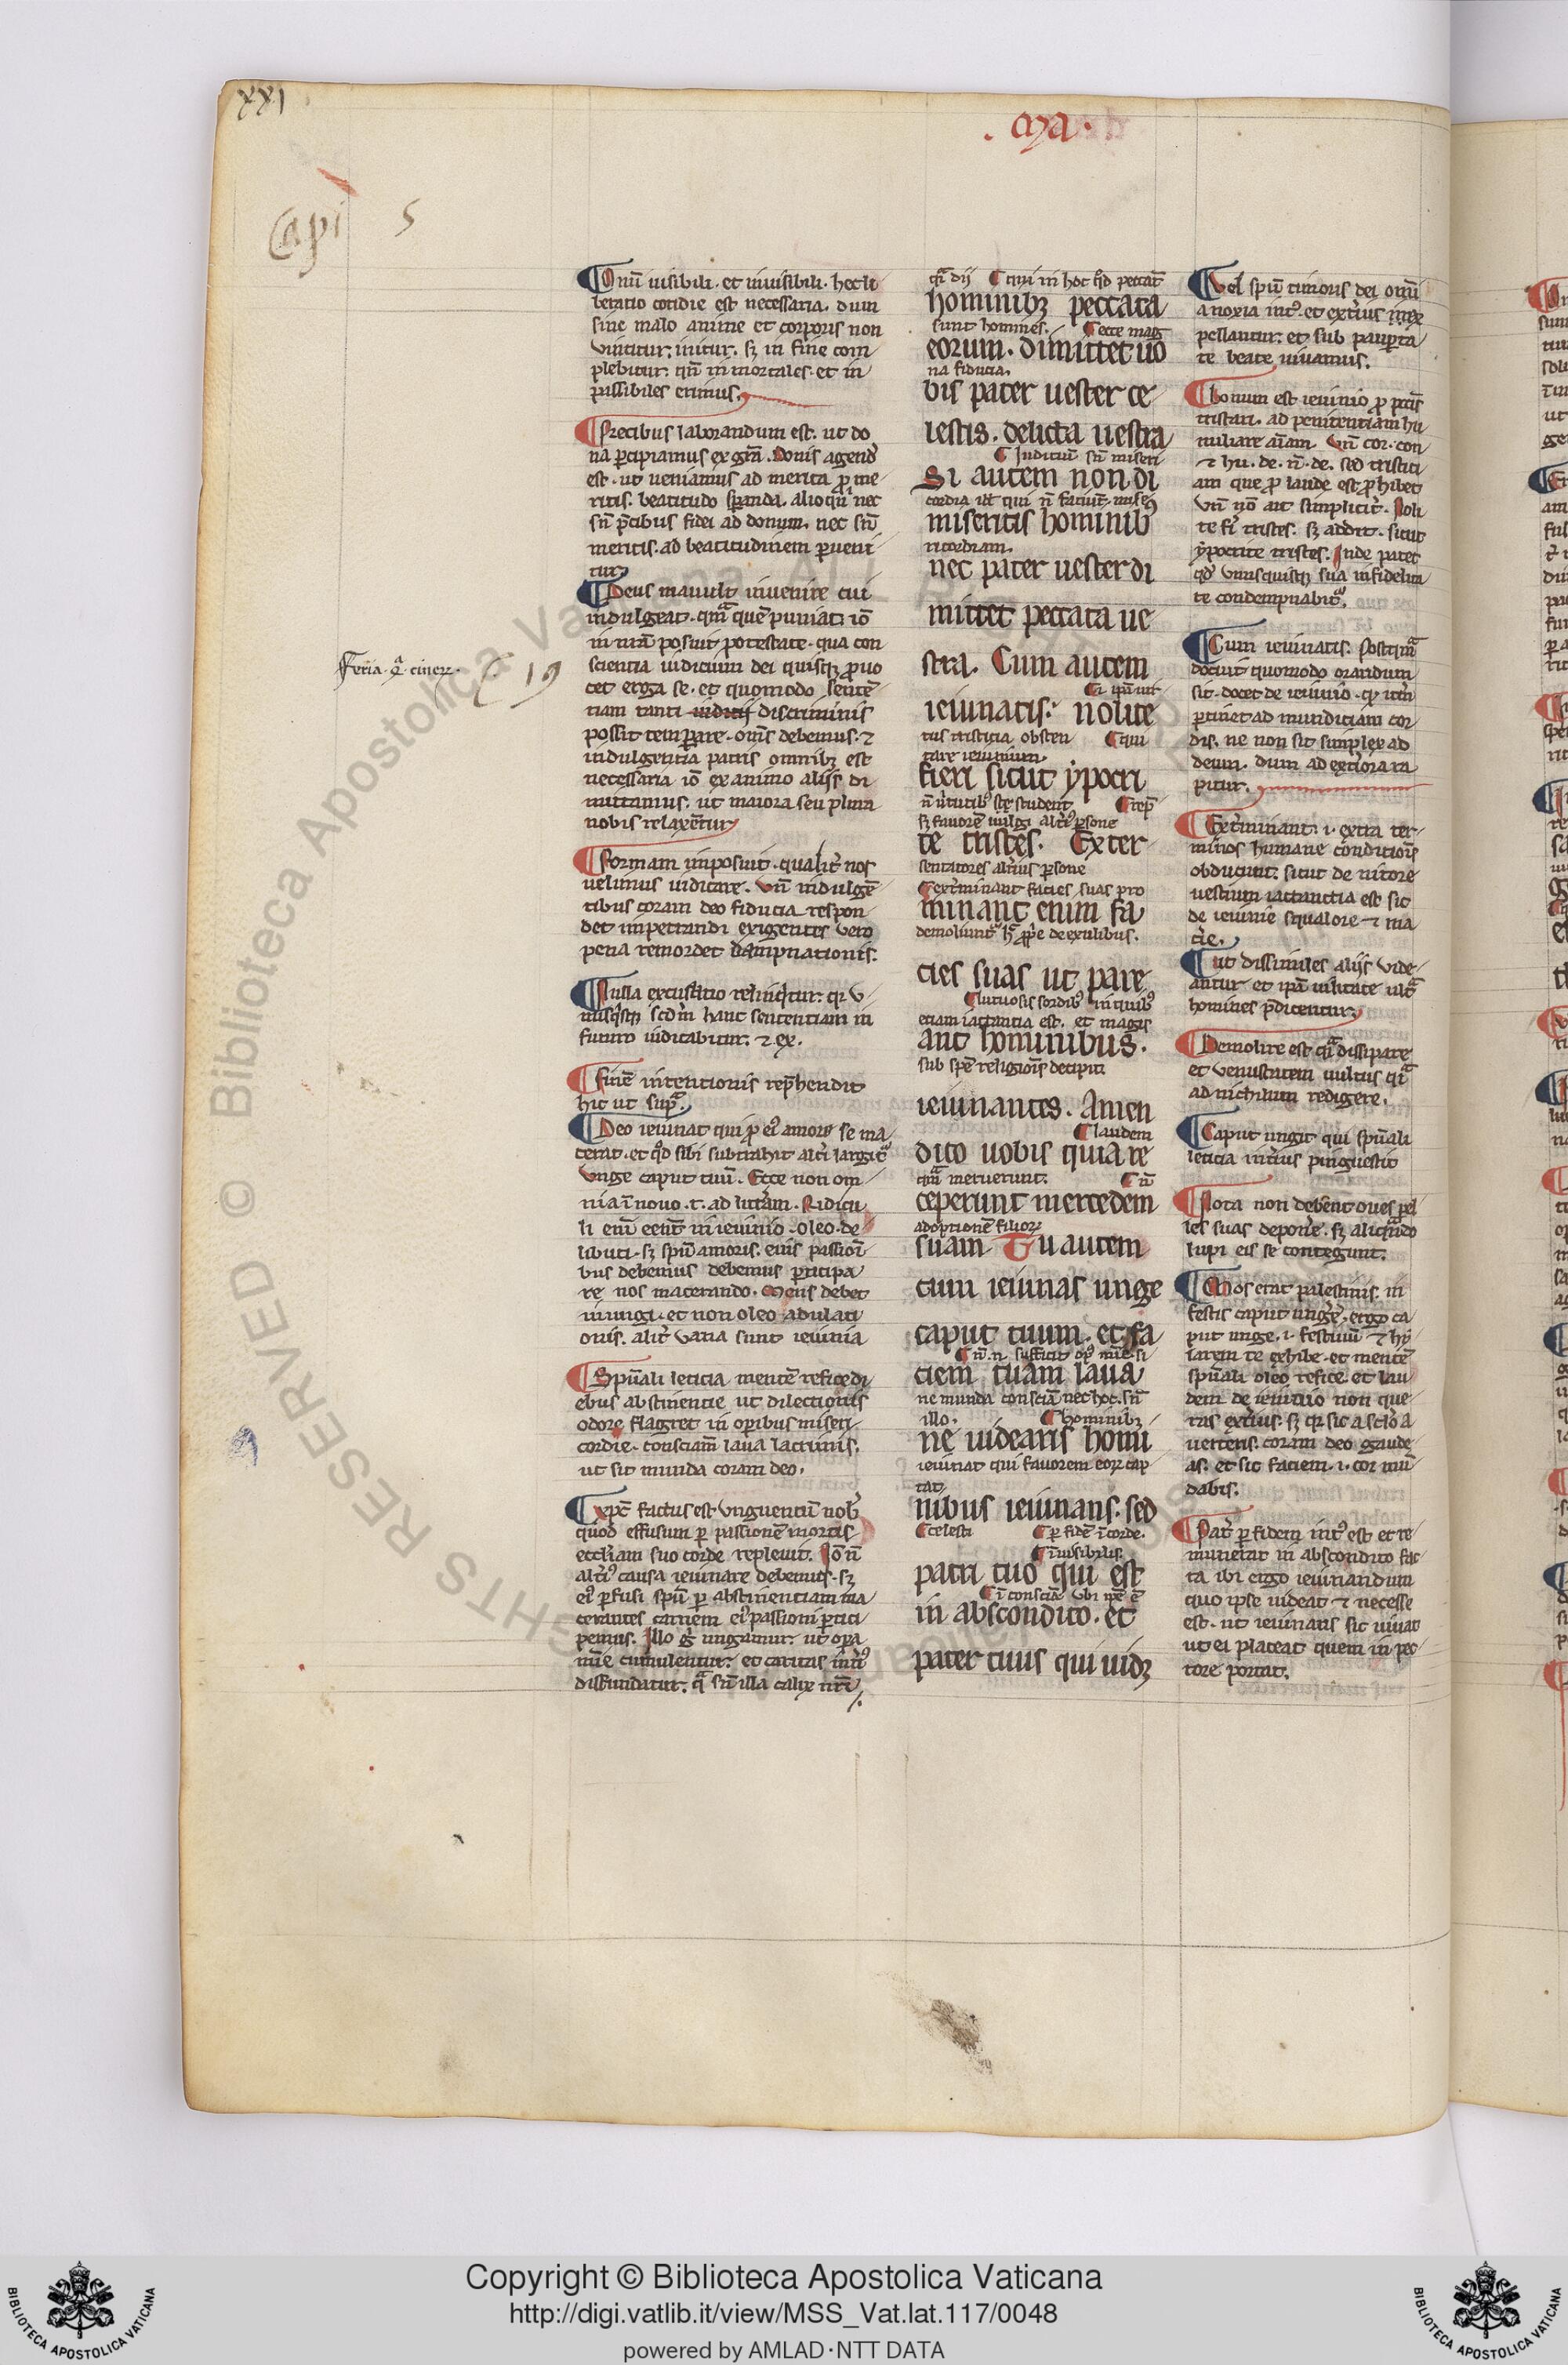 xxi
. ma .
Capi 5
¶ Omī uisibili. et inuisibili. hec li
beratio cotidie est necessaria. dum
sine malo anime et corporis non
uiuitur: initur. sȝ in fine com
plebitur: qn̄ inmortales et in
passibiles erimus.
¶ Precibus laborandum est. ut do
na ꝑcipiamus ex grā. Donis agend̄
est. ut ueniamus ad merita ꝓ me
ritis. beatitudo speranda. alioqͥn nec
sn̄ p̄cibus fidei ad donum. nec sn̄
meritis. ad beatitudinem ꝑueni
tur.
¶ Deus mauult inuenire cui
indulgeat. qͣm quē puniat: iō
in nr̄a posuit potestate. qua con
scientia iudicium dei quisqȝ ꝓuo
cet erga se. et quomodo senten̄
tiam tanti iudicii discriminis
possit temꝑare. om̄s debemus. ⁊
indulgentia patris omnibȝ est
necessaria iō ex animo aliis di
mittamus. ut maiora seu plura
nobis relaxētur
Feria. qͣ. cineꝝ. C. 19
¶ Formam imposuit. qualit̄ nos
uelimus iudicare. Vn̄ indulgē
tibus coram deo fiducia respon
det impetrandi exigentes vero
pena remordet dampnationis.
¶ Nulla excusatio relinqͥtur: qꝛ v
nusqͥsqȝ scdm hanc sententiam in
futuro iudicabitur. ⁊ ex.
¶ Finē intentionis rep̄hendit
hic ut supͣ.
¶ Deo ieiunat qui ꝓ eiꝰ amore se ma
cerat. et qͦd sibi subtrahit alt̄i largit᷑
Vnge caput tuū. Ecce non om
nia ī nouo. t. ad litt̄am. Ridicu
li enī eent̄ in ieiunio oleo de
libuti. sȝ spū amoris. cuius passioī
bus debemus debemus ꝑticipa
re nos macerando. Mens debet
inungi. et non oleo adulati
onis. alit̄ vana sunt ieiunia
¶ Spūali leticia mentē refice di
ebus abstinentie ut dilectionis
odore flagret in oꝑibus miseri
cordie. consciam̄ laua lacrimis.
ut sit munda coram deo.
¶ xp̄c factus est vnguentū nob̄
quod effusum ꝑ passionē mortis
eccl̄iam suo corde repleuit. Iō n̄
alt̄iꝰ causa ieiunare debemus. sȝ
eiꝰ ꝑfusi spū ꝑ abstinentiam ma
cerantes carnem eiꝰ passioni ꝑtici
pemus. Illo gͦ ungamur ut oꝑa
mīe cumulentur: et caritas int̄iꝰ
diffundatur. qͣ sn̄ illa calix nr̄i
qͣ dii ¶ qui in hoc qͥd peccat̄
hominibȝ peccata
sunt homines. ¶ ecce mag
eorum. dimittet uo
na fiducia.
bis pater uester ce
lestis. delicta uestra
¶ Iudiciū sn̄ miseri
Si autem non di
cordia ill̄ qui n̄ faciūt miseͥ
miseritis hominib
ricordiam.
nec pater uester di
mittet peccata ue
stra. Cum autem
ieiunatis: nolite
tus tristicia obsten ¶ qui
tare ieiunium.
fieri sicut ypocri
n̄ uirtutibꝰ ste student
sȝ fauorē uulgi alt̄iꝰ ꝑsone
te tristes. Exter
sentatores alterius ꝑsone
¶ ext̄minant facies suas pro
minant enim fa
demoliunt᷑
cies suas ut pare
¶ luctuosis sordibꝰ in quibꝰ
etiam iactantia est. et magis
ant hominibus.
sub spē religioīs decipit
ieiunantes. Amen
¶ laudem
dico uobis quia re
qͣm metuerunt. ¶ n̄
ceperunt mercedem
adoptionē filioꝝ
suam. Tu autem
cum ieiunas unge
caput tuum. et fa
ciem tuam laua
ne munda consciā nec hoc. sn̄
illo. ¶ hominibȝ
ne uidearis homi
ieiunat qui fauorem eoꝝ cap
tat.
nibus ieiunans. sed
¶ celesti ¶ ꝑ fidē ī corde.
¶ īuisibilis.
patri tuo qui est
¶ ī consciā vbi ip̄e ē
in abscondito. et
pater tuus qui uidȝ
¶ Vel spū timoris dei om̄i
a noxia intꝰ. et ext̄ius
pellantur: et sub pauꝑta
te beate uiuamus.
¶ bonum est ieiunio ꝓ pcc̄is
tristari. ad penitentiam hu
miliare aīam. Vn̄ cor. con
⁊ hu. de. n̄. de. sed tristici
am que ꝓ laude est ꝓhibet
Vn̄ nō ait simplicit̄. Noli
te fi̓ tristes. sȝ addit. sicut
ypocrite tristes. Inde patet
qͦd vnusquisqȝ sua infidelita
te condempnabit᷑.
¶ Cum ieiunatis. Postqͣm
docuit quomodo orandum
sit. docet de ieiunio. qꝛ it̄m
ꝑtinet ad mundiciam cor
dis. ne non sit simplex ad
deum. dum ad exteriora ra
pitur.
¶ Ext̄minant: .i. extra ter
minos humane conditiōis
obducunt: sicut de nitore
vestium iactanctia est sic
de ieiunie squalore ⁊ ma
cie.
¶ ut dissimiles aliis vide
antur et ip̄a uilitate ultͣ
homines p̄dicentur:
¶ Demolire est qͣ dissipare
et venustatem uultus qͣ
ad nichilum redigere.
¶ Caput ungit qui spūali
leticia int̄ius pinguescit
¶ Nota non debent oues pel
les suas deponere. sȝ aliqͣndo
lupi eis se contegunt.
¶ Mos erat palestinis. in
festis caput ungere. ergo ca
put unge. i. festiuū ⁊ hy
larem te exhibe. et mentē
spūali oleo refice. et lau
dem de ieiunio non que
ras ext̄ius. sȝ qꝛ sic a sclo a
uerteris. coram deo gaude
as. et sic faciem. i. cor mū
dabis.
¶ Pat̄ ꝑ fidem intꝰ est et re
munerat in abscondito fac
ta ibi ergo ieiunandum
quo ipse uideat ⁊ necesse
est. ut ieiunans sic uiuat
ut ei placeat quem in pec
tore portat.
9
BIBLIOTECA APOSTOLICA VATICANA
Copyright © Biblioteca Apostolica Vaticana
http://digi.vatlib.it/view/MSS_Vat.lat.117/0048
powered by AMLAD·NTT DATA
BIBLIOTECA APOSTOLICA VATICANA